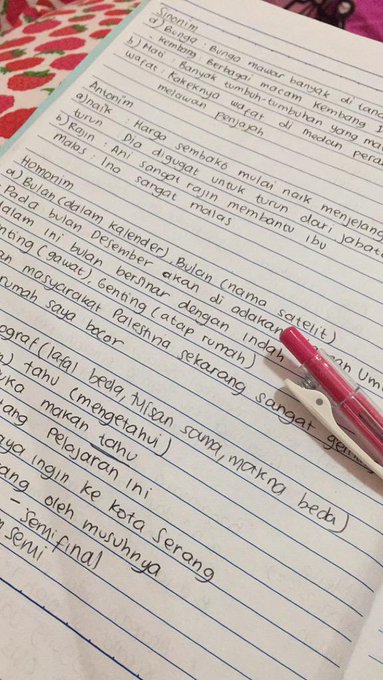 Sinonim
a) Bunga : Bunga mawar banyak di
- Kembang : Berbagai macam kembang
b) Mati : Banyak tumbuh-tumbuhan yang
wafat : Kakeknya wafat di medan
melawan penjajah
Antonim
a) naik : Harga sembako mulai naik menjelang
turun : Dia digugat untuk turun dari
b) Rajin : Ani sangat rajin membantu ibu
malas : Ina sangat malas
Homonim
a) Bulan (dalam kalender), Bulan (nama satelit)
: Pada bulan Desember akan di adakan
ini bulan bersinar dengan indah
(gawat), Genting (atap rumah)
masyarakat Palestina sekarang sangat
rumah saya bocor
(lafal beda, tulisan sama, makna beda)
tahu (mengetahui)
makan tahu
Pelajaran ini
ingin ke kota Serang
oleh musuhnya
- semifinal
semi